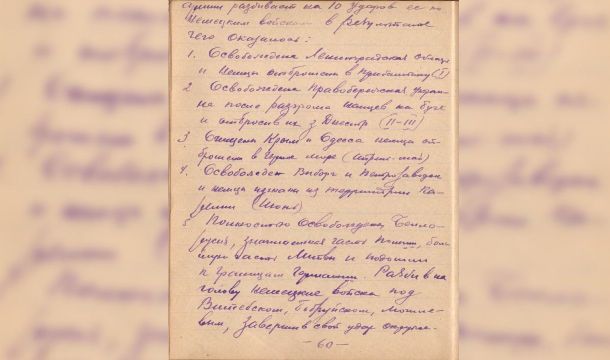 армии разбивает на 10 ударов ее по
Немецким войскам в Результате
чего оказалось:
1. Освобождена Ленинградская область
и Немцы отброшены в прибалтику (I)
2 Освобождена Правобережная Украи-
на после разгрома немцев на Буге
и отбросив их з Днестр (II-III)
3 Очищены Крым и Одесса немцы от-
брошены в Черное море (апрель-май)
4. Освобожден Выборг и Петрозаводск
и немцы изгнаны из территории Ка-
релии (Июнь)
5 Полностью Освобождена Бело-
русия, значительная часть Польши, боль
шую часть Литвы и подошли
к границам Германии. Разбив на
голову Немецкие войска под
Витебском, Бобруйском, Могиле-
вым, Завершив свой удар окруже-
-60-